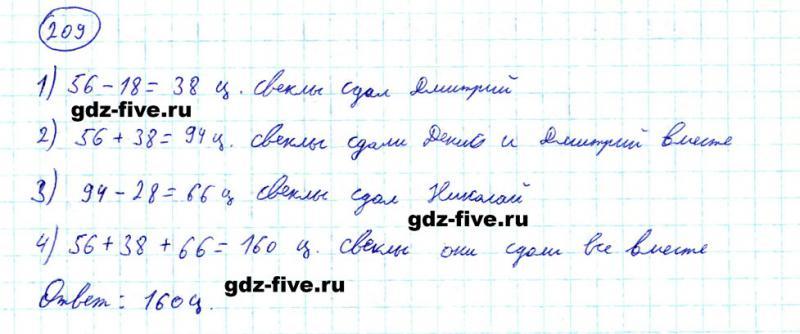 209
1) 56 - 18 = 38 ц. свеклы сдал Дмитрий
gdz-five.ru
2) 56 + 38 = 94 ц. свеклы сдали Денис и Дмитрий вместе
3) 94 - 28 = 66 ц свеклы сдал Николай
gdz-five.ru
4) 56 + 38 + 66 = 160 ц. свеклы они сдали все вместе
gdz-five.ru
Ответ: 160 ц.